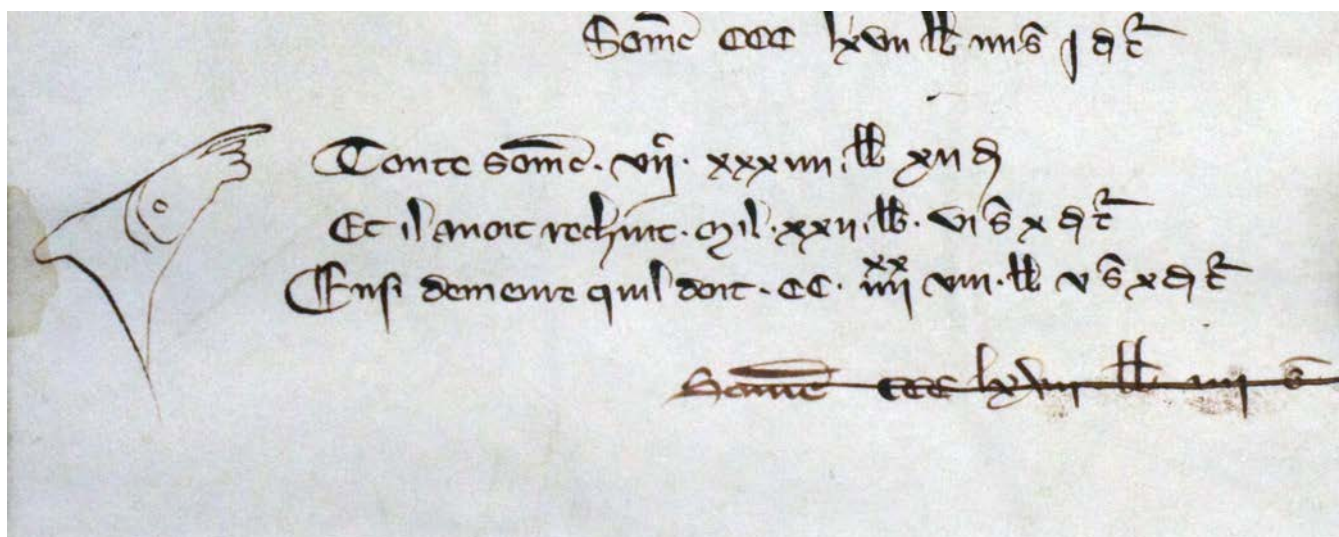 Som̄e ccc lxvii lb iiii s̄ j d t̄
Toute som̄e · vii^c · xxxiiii · lb xii d
Et il auoit rechiut · Mil · xxii · lb · vi s̄ x d t̄
Ensi demeure quil doit · cc · iiii^xx viii · lb v s̄ x d t̄
Som̄e ccc lxviii lb iiii s̄